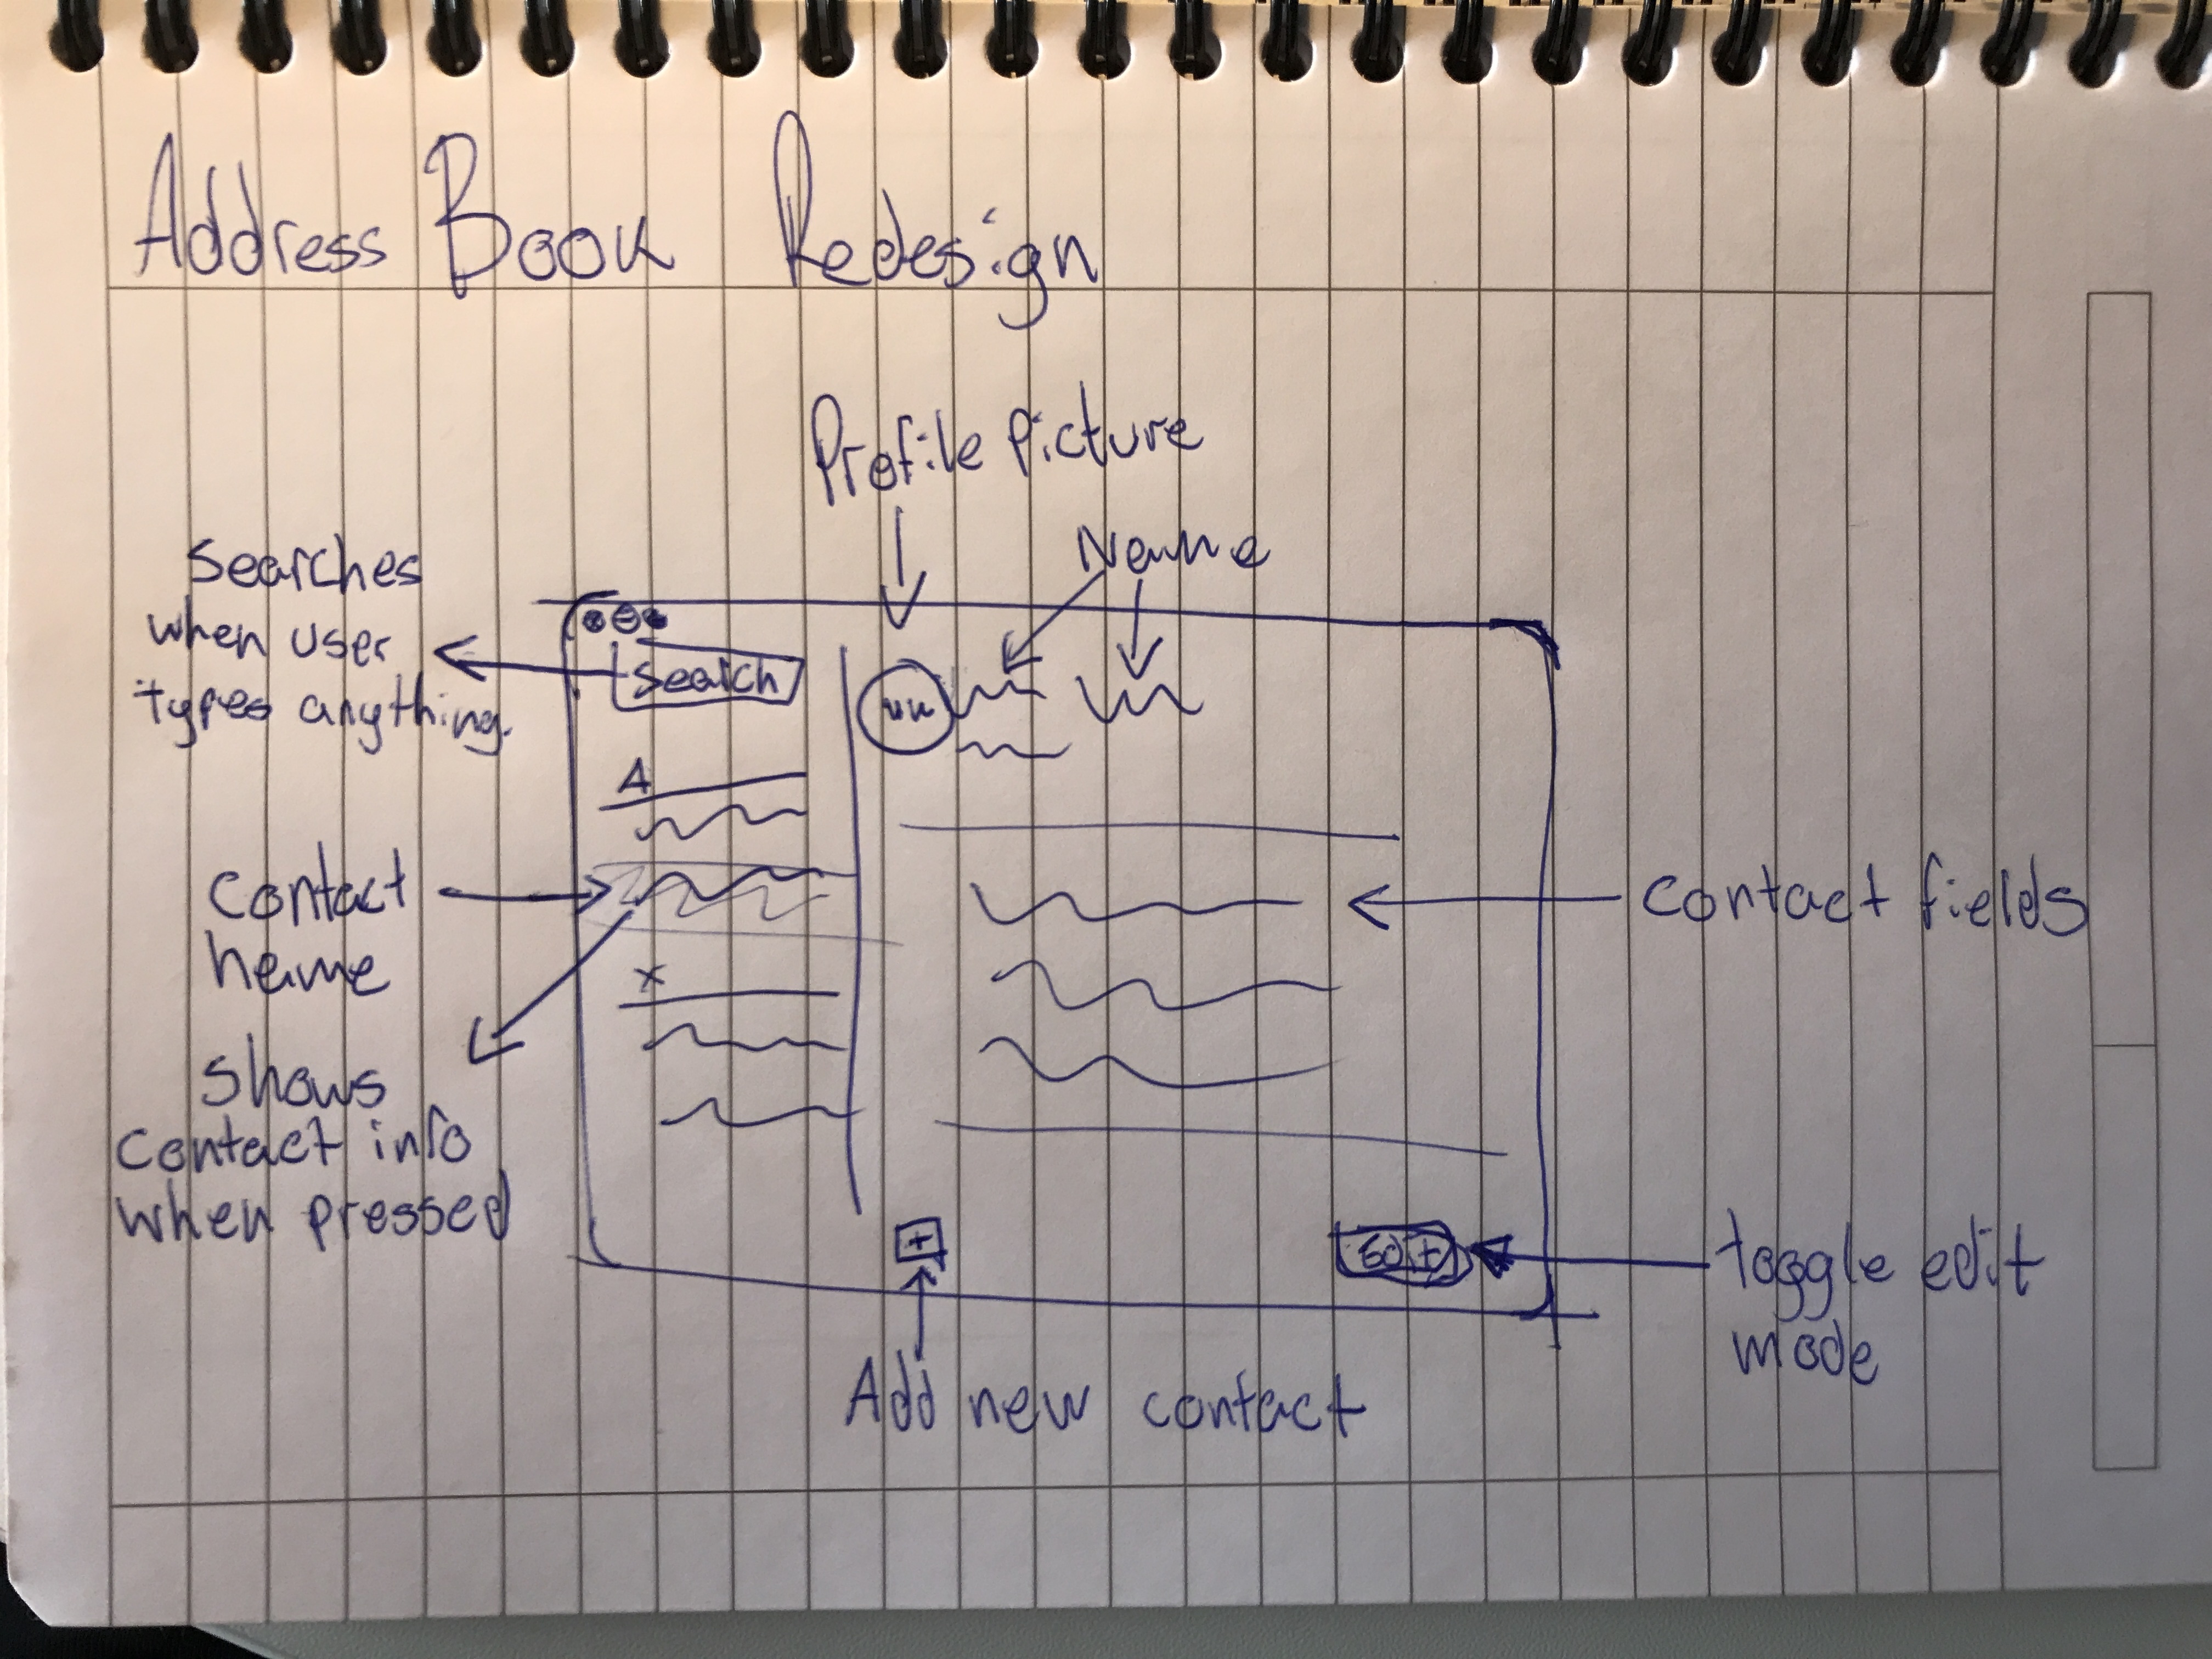 Address Book Redesign
Profile Picture
Name
Searches
when user
types anything.
Search
A
Contact
name
x
Shows
Contact info
when pressed
Contact fields
+
Edit
toggle edit
mode
Add new contact